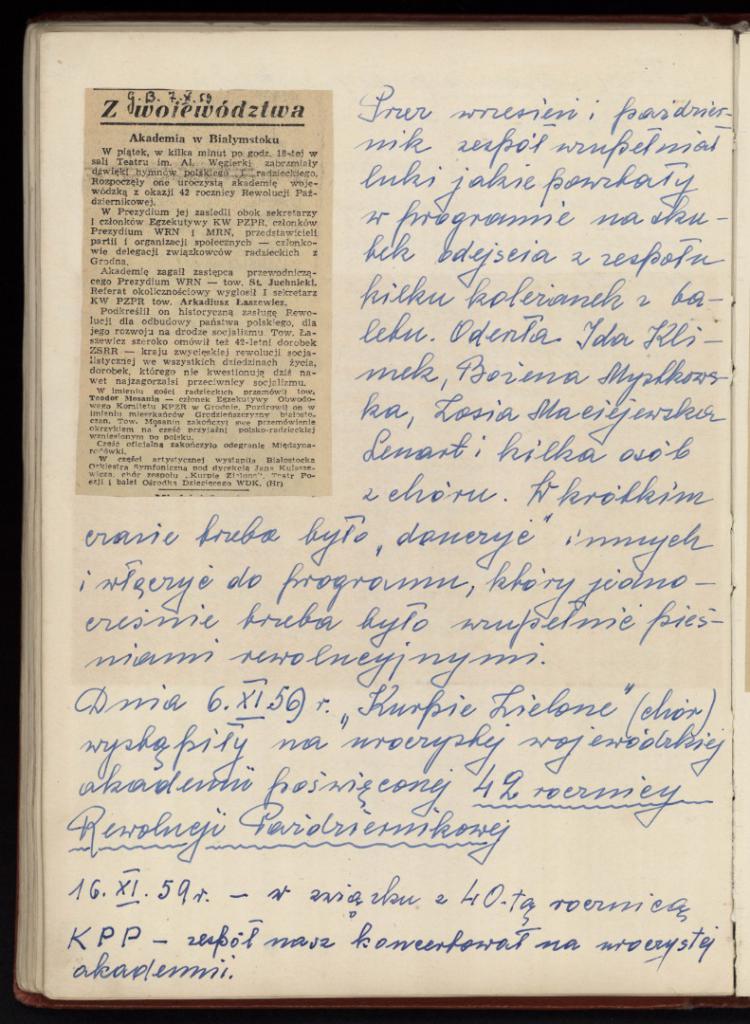 G.B. 7.X.59
Z województwa
Akademia w Białymstoku
W piątek, w kilka minut po godz. 18-tej w
sali Teatru im. Al. Węgierki zabrzmiały
dźwięki hymnów polskiego i radzieckiego.
Rozpoczęły one uroczystą akademię woje-
wódzką z okazji 42 rocznicy Rewolucji Paź-
dziernikowej.
W Prezydium jej zasiedli obok sekretarzy
i członków Egzekutywy KW PZPR, członków
Prezydium WRN i MRN, przedstawicieli
partii i organizacji społecznych — członko-
wie delegacji związkowców radzieckich z
Grodna.
Akademię zagaił zastępca przewodniczą-
cego Prezydium WRN — tow. St. Juchnicki.
Referat okolicznościowy wygłosił I sekretarz
KW PZPR tow. Arkadiusz Łaszewicz.
Podkreślił on historyczną zasługę Rewo-
lucji dla odbudowy państwa polskiego, dla
jego rozwoju na drodze socjalizmu Tow. Ła-
szewicz szeroko omówił też 42-letni dorobek
ZSRR — kraju zwycięskiej rewolucji socja-
listycznej we wszystkich dziedzinach życia,
dorobek, którego nie kwestionują dziś na-
wet najzagorzalsi przeciwnicy socjalizmu.
W imieniu gości radzieckich przemówił tow.
Teodor Mosania — członek Egzekutywy Obwodo-
wego Komitetu KPZR w Grodnie. Pozdrowił on w
imieniu mieszkańców Grodzieńszczyzny białosto-
czan. Tow. Mosanin zakończył swe przemówienie
okrzykiem na cześć przyjaźni polsko-radzieckiej
wzniesionym po polsku.
Część oficjalną zakończyło odegranie Międzyna-
rodówki.
W części artystycznej wystąpiła Białostocka
Orkiestra Symfoniczna pod dyrekcją Jana Kulasze-
wicza, chór zespołu „Kurpie Zielone", Teatr Po-
ezji i balet Ośrodka Dziecięcego WDK. (Hr)
Przez wrzesień i paździer-
nik zespół wzupełniał
luki jakie powstały
w programie na sku-
tek odejścia z zespołu
kilku koleżanek z ba-
letu. Odeszła Ida Kli-
mek, Bożena Myśłkows-
ka, Zosia Maciejewska
Lenart i kilka osób
z chóru. W krótkim
czasie trzeba było „douczyć" innych
i włączyć do programu, który jedno-
cześnie trzeba było wzupełnić pieś-
niami rewolucyjnymi.
Dnia 6.XI.59 r. „Kurpie Zielone" (chór)
wystąpiły na uroczystej wojewódzkiej
akademii poświęconej 42 rocznicy
Rewolucji Październikowej
16.XI.59 r. — w związku z 40-tą rocznicą
KPP — zespół nasz koncertował na uroczystej
akademii.